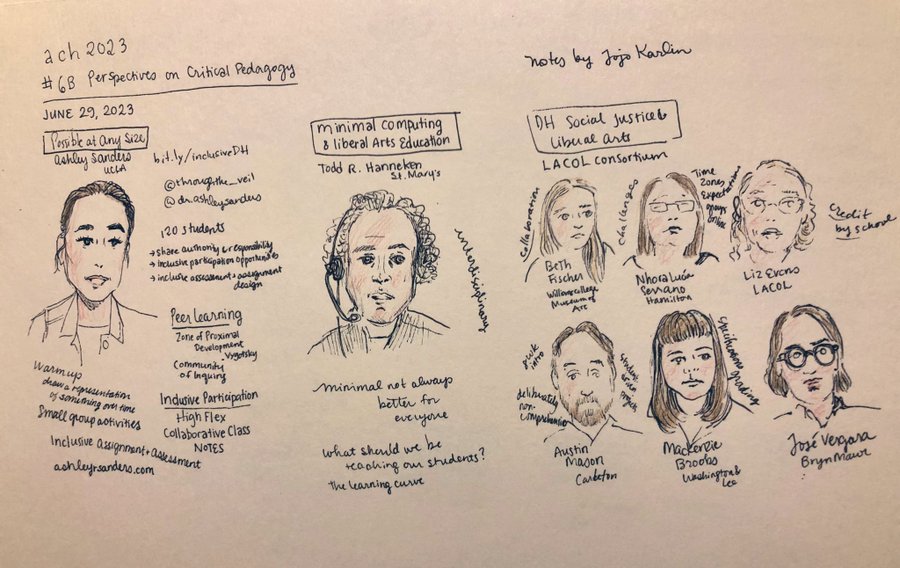 ach 2023
#6B Perspectives on Critical Pedagogy
JUNE 29, 2023
notes by Jojo Karlin
Possible at Any Size
Ashley Sanders
UCLA
bit.ly/inclusiveDH
@throughthe_veil
@dr.ashleysanders
120 students
→ share authority & responsibility
→ inclusive participation opportunities
→ inclusive assessment + assignment
design
Peer learning
Zone of Proximal
Development
Vygotsky
Community
of Inquiry
Inclusive Participation
High Flex
Collaborative Class
NOTES
warm up
draw a representation
of something over time
Small group activities
Inclusive Assignment + Assessment
ashleyrsanders.com
minimal computing
& liberal Arts Education
Todd R. Hanneken
St. Mary's
interdisciplinary
minimal not always
better for
everyone
what should we be
teaching our students?
the learning curve
DH Social Justice &
Liberal Arts
LACOL Consortium
Collaboration
Beth
Fischer
Williams college
Museum of
Art
Challenges
Nhora Lucía
Serrano
Hamilton
Time
Zones
Expectations
Liz Evans
LACOL
credit
by school
quick
intro
deliberately
non-
comprehensive
Austin
Mason
Carleton
Student
Mackenzie
Brooks
Washington &
Lee
Specifications grading
José Vergara
Bryn Mawr